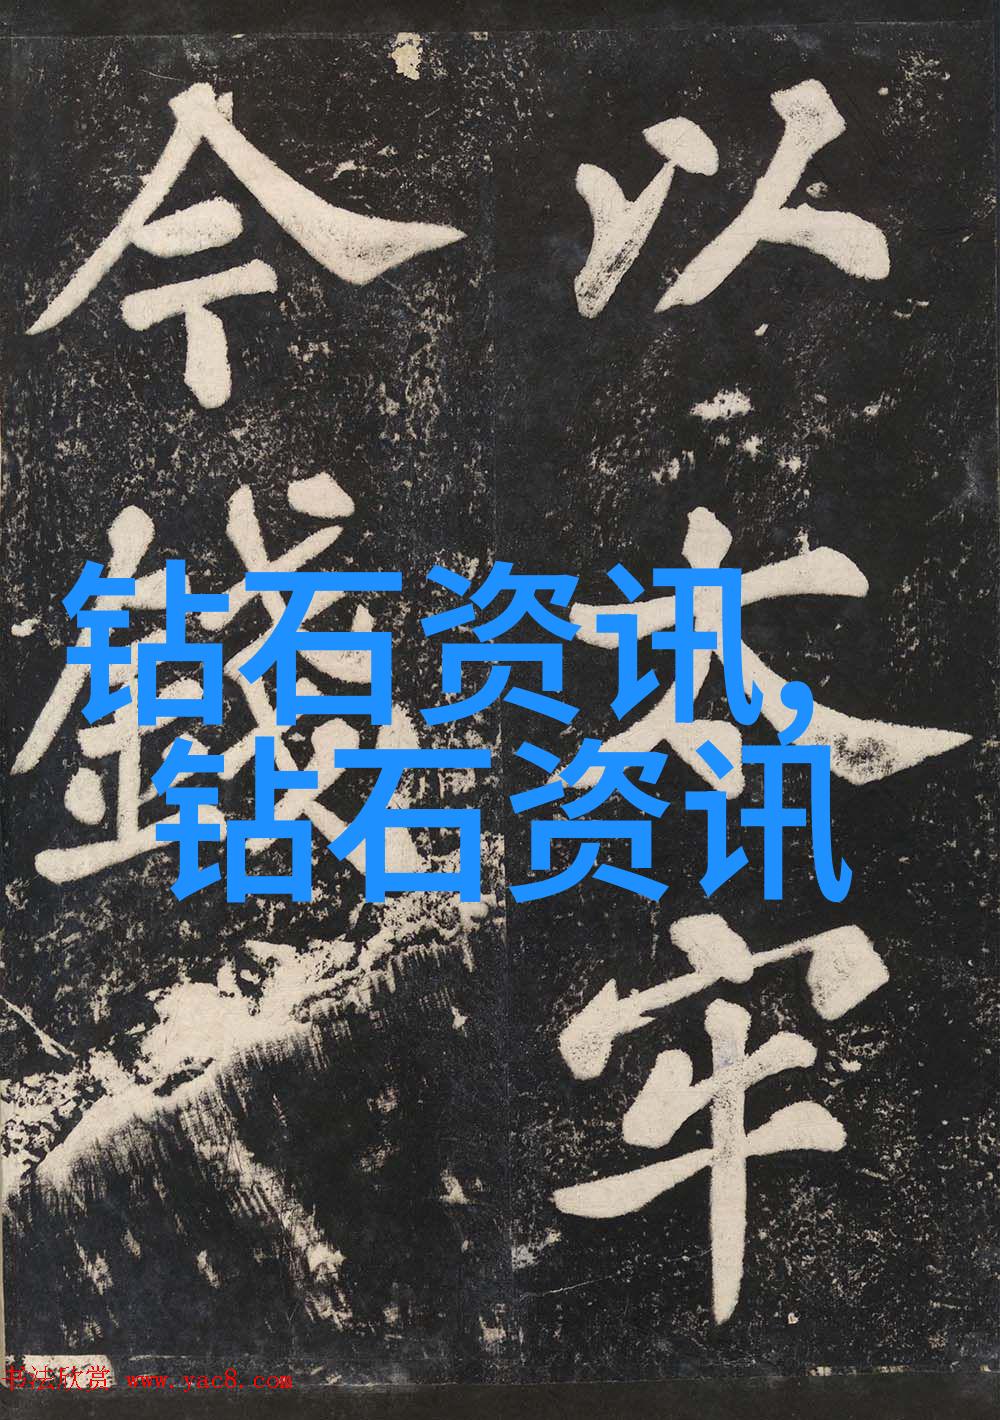 以太牢
今錢
钻石资讯,
钻石资讯
书法欣赏 www.yac8.com